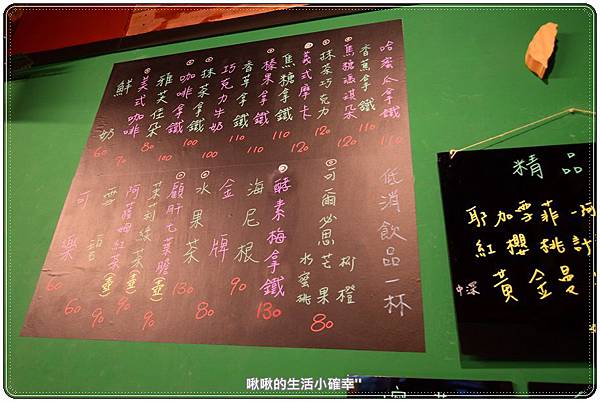 哈密瓜拿鐵 110
香蕉拿鐵 110
焦糖瑪琪朵 120
抹茶巧克力 120
義式摩卡 120
焦糖拿鐵 110
榛果拿鐵 110
香草拿鐵 110
巧克力牛奶 100
抹茶拿鐵 100
咖啡拿鐵 100
雅芙佳朵 80
美式咖啡 70
鮮奶 60
低消飲品一杯
可爾必思 水蜜桃 芒果 柳橙 80
酵素梅拿鐵 130
海尼根 90
金牌 80
水果茶
顧肝元葉膽 130
茉莉綠茶(壺) 90
阿薩姆紅茶(壺) 90
雪碧 60
可樂 60
精品
耶加雪菲 一阿
紅櫻桃計
中深 黃金曼
啾啾的生活小確幸"